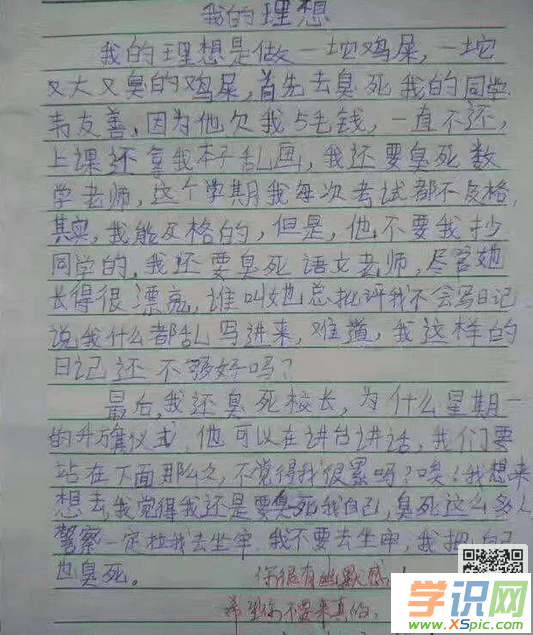 我的理想
我的理想是做一坨鸡屎，一坨
又大又臭的鸡屎，首先去臭死我的同学
韦友善，因为他欠我5毛钱，一直不还，
上课还拿我本子乱画，我还要臭死数
学老师，这个学期我每次考试都不及格，
其实，我能及格的，但是，他不要我抄
同学的，我还要臭死语文老师，尽管她
长得很漂亮，谁叫她总批评我不会写日记
说我什么都乱写进来，难道，我这样的
日记还不够好吗？
最后，我还臭死校长，为什么星期一
的升旗仪式，他可以在讲台讲话，我们要
站在下面那么久，不觉得我很累吗？唉！我想来
想去，我觉得我还是要臭死我自己，臭死这么多人
警察一定拉我去坐牢，我不要去坐牢，我把自己
也臭死。
你很有幽默感！
希望你不要来真的，
学识网
XSpic.com